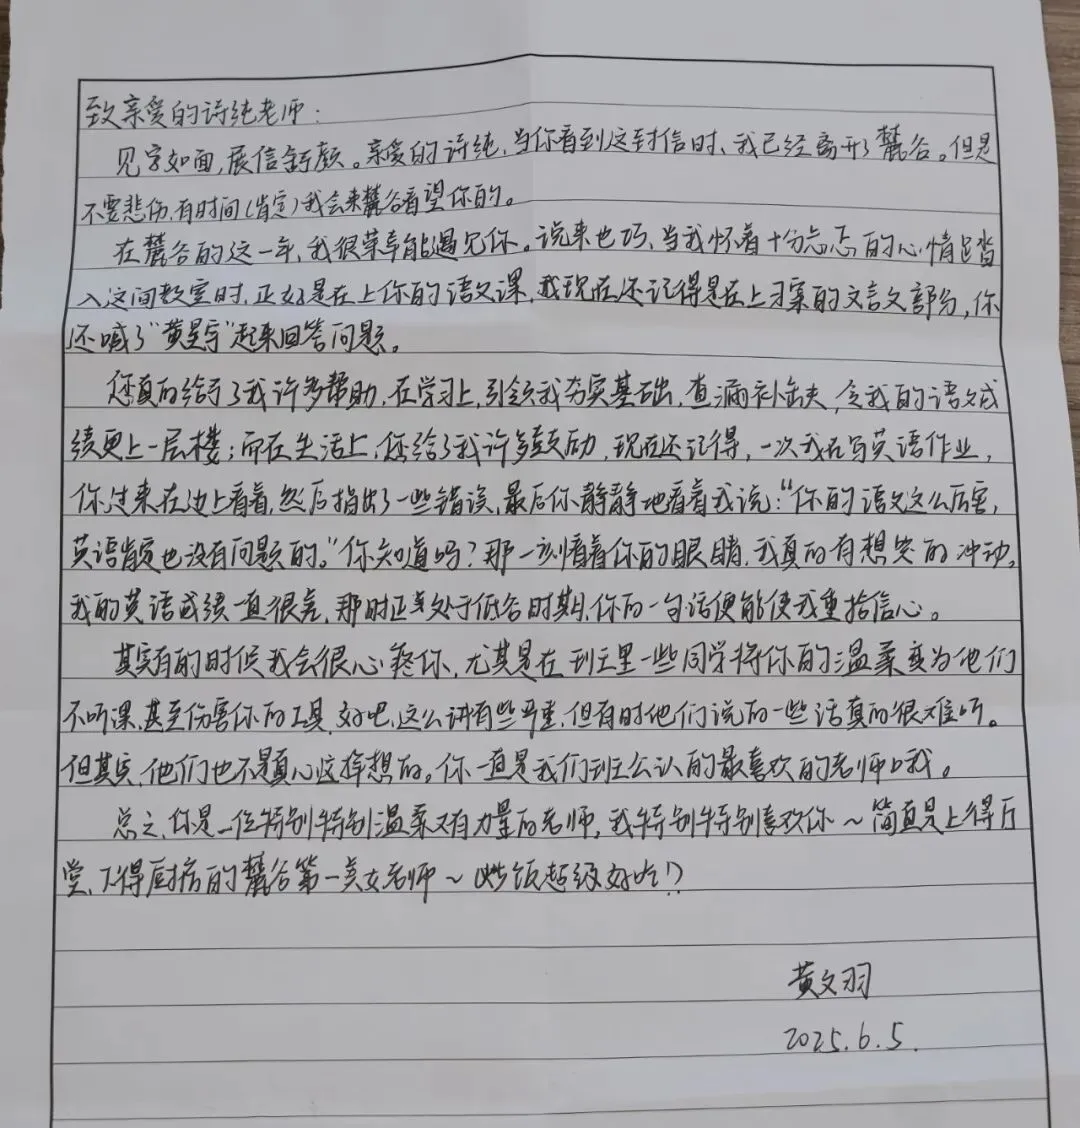 致亲爱的诗纯老师:
见字如面,展信舒颜。亲爱的诗纯,当你看到这封信时,我已经离开了麓谷。但是
不要悲伤,有时间(肯定)我会来麓谷看望你的。
在麓谷的这一年,我很荣幸能遇见你。说来也巧,当我怀着十分忐忑的心情踏
入这间教室时,正好是在上你的语文课,我现在还记得是在上习案的文言文部分,你
还喊了“黄星宇”起来回答问题。
您真的给了我许多帮助,在学习上,引领我夯实基础,查漏补缺,令我的语文成
绩更上一层楼;而在生活上,您给了我许多鼓励,现在还记得,一次我在写英语作业,
你过来在边上看着,然后指出了一些错误,最后你静静地看着我说:“你的语文这么厉害,
英语肯定也没有问题的。”你知道吗?那一刻看着你的眼睛,我真的有想哭的冲动。
我的英语成绩一直很差,那时正处于低谷时期,你的一句话便能使我重拾信心。
其实有的时候我会很心疼你,尤其是在班里一些同学将你的温柔变为他们
不听课,甚至伤害你的工具,好吧,这么讲有些严重,但有时他们说的一些话真的很难听。
但其实,他们也不是真心这样想的。你一直是我们班公认的最喜欢的老师哦。
总之,你是一位特别特别温柔又有力量的老师,我特别特别喜欢你~简直是上得厅
堂、下得厨房的麓谷第一美女老师~(饭超级好吃!)
黄文羽
2025.6.5.